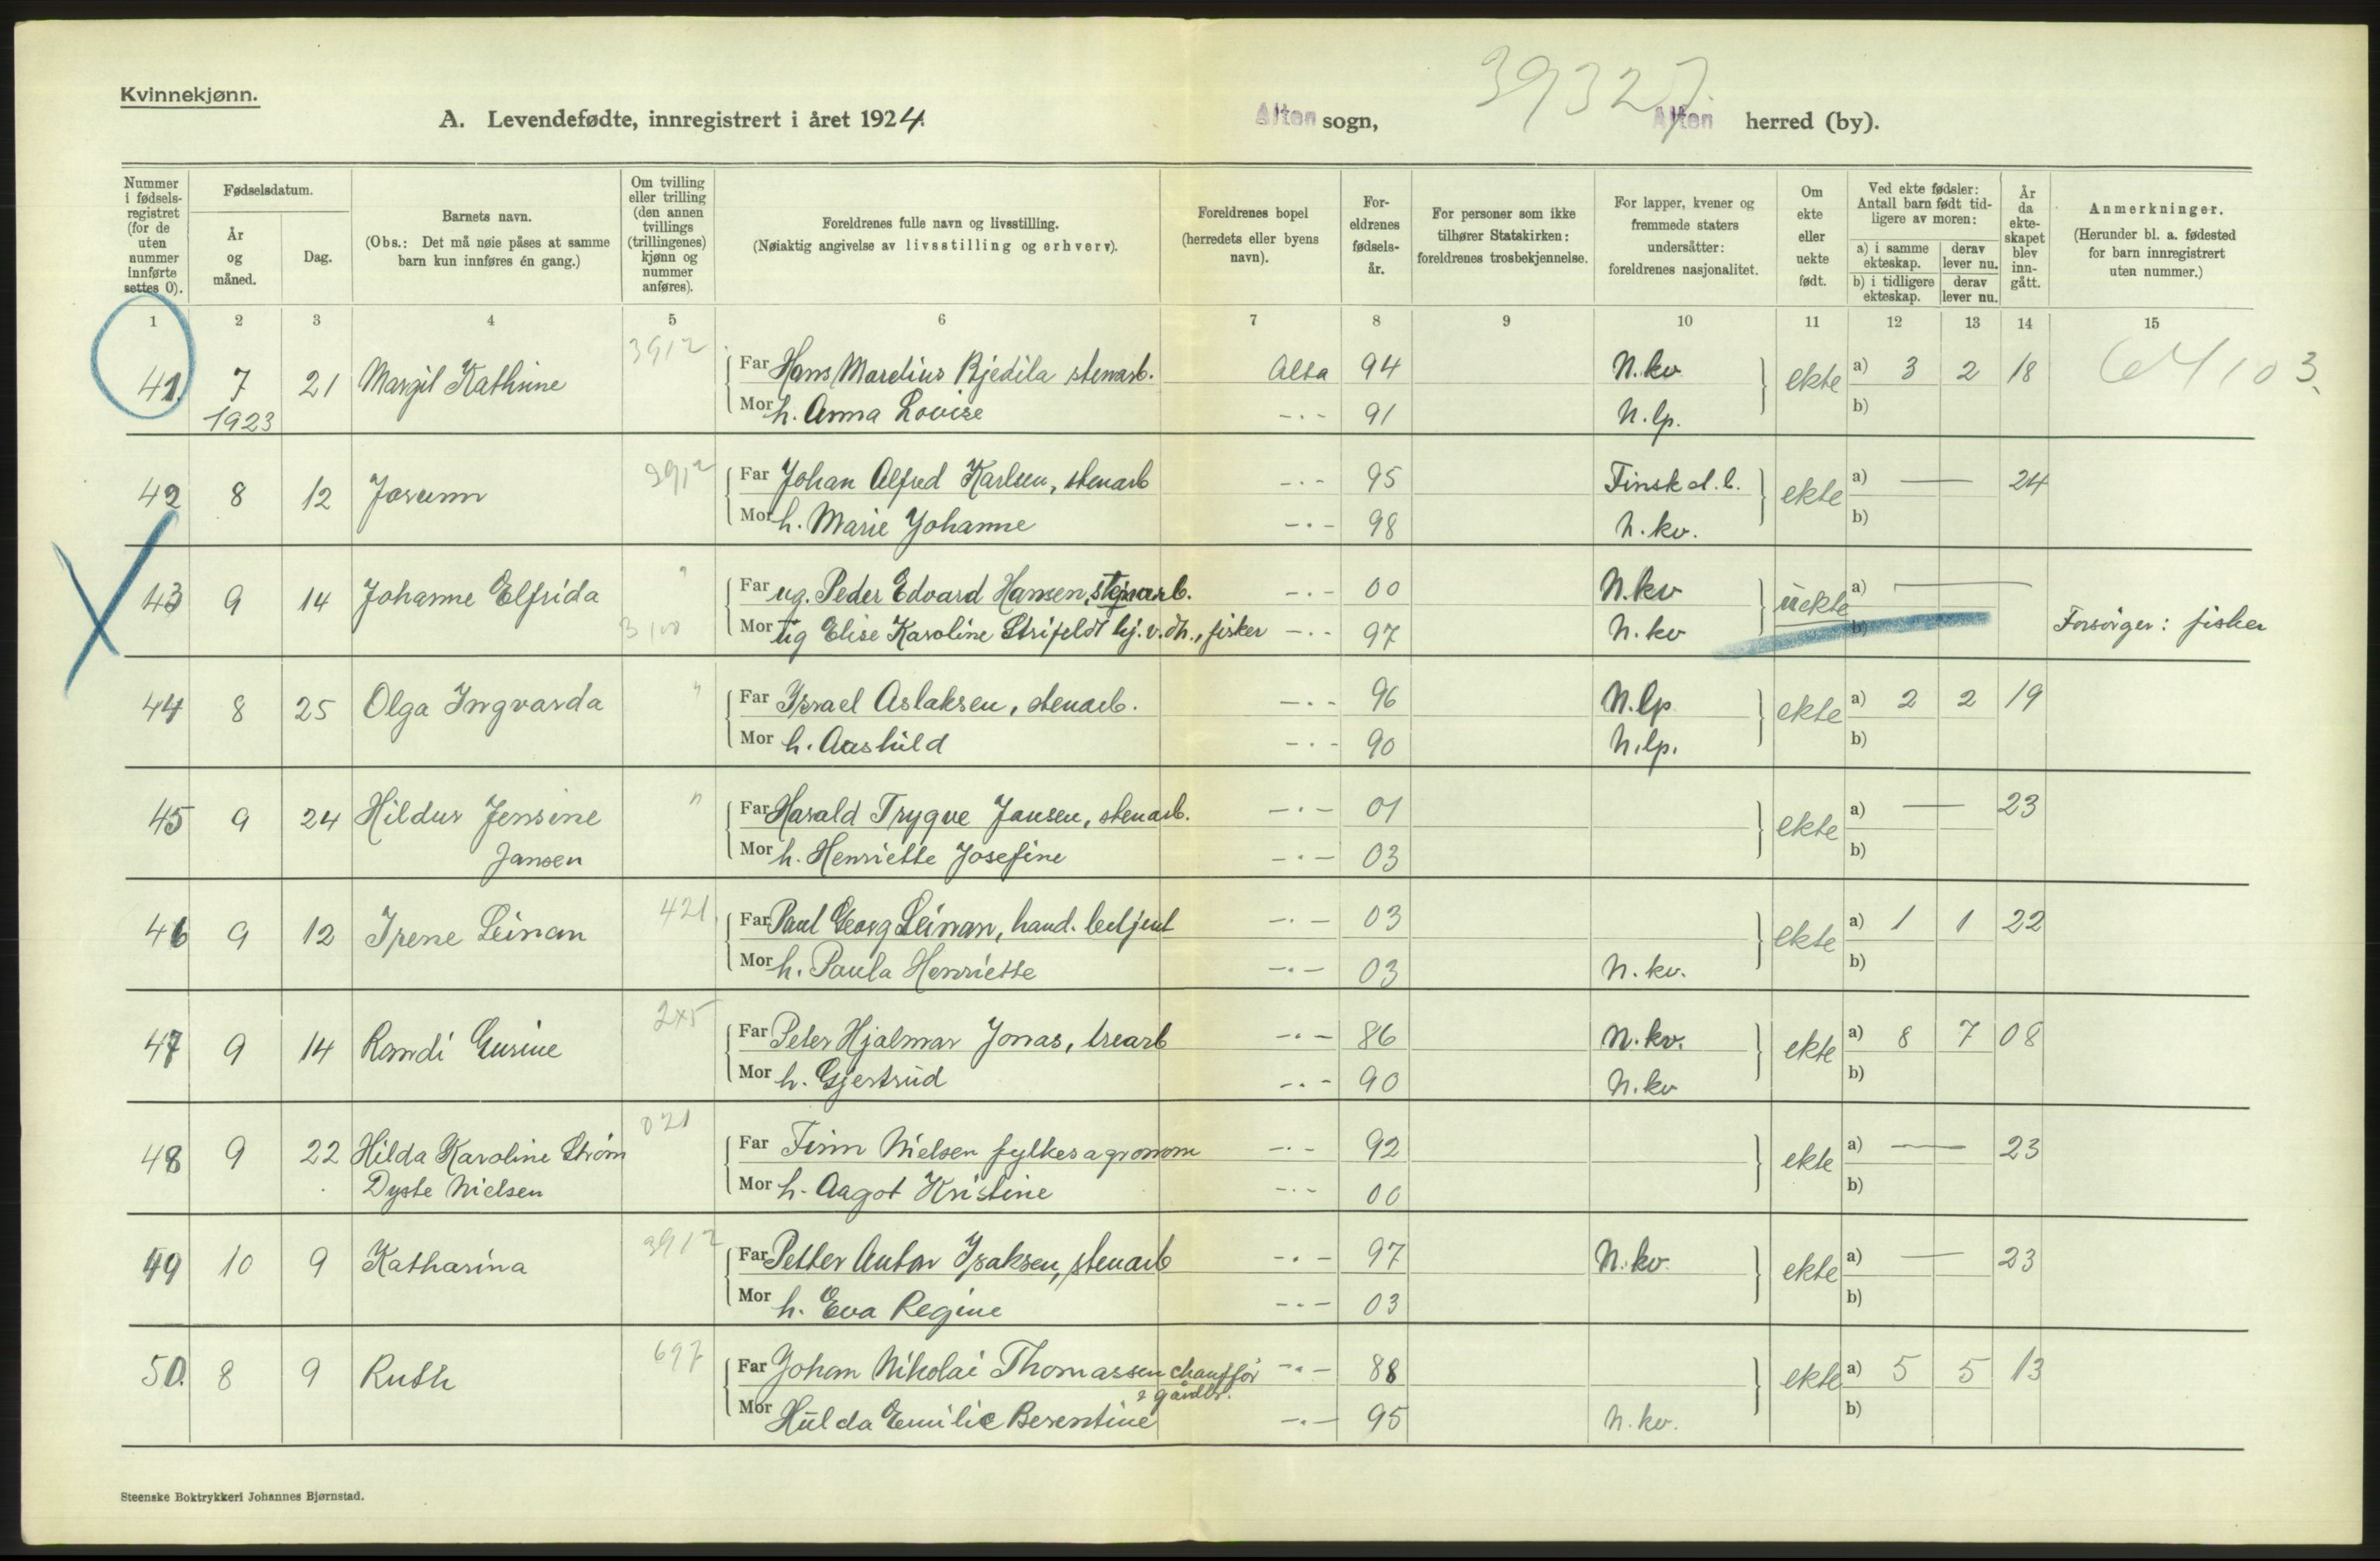 Kvinnekjønn.
39327.
A. Levendefødte, innregistrert i året 1924. Alten sogn, Alten herred (by).
Nummer i fødselsregistret (for de uten nummer innførte settes 0).
Fødselsdatum.
År og måned.
Dag.
Barnets navn.
(Obs.: Det må nøie påses at samme barn kun innføres én gang.)
Om tvilling eller trilling (den annen tvillings (trillingenes) kjønn og nummer anføres).
Foreldrenes fulle navn og livsstilling.
(Nøiaktig angivelse av livsstilling og erhverv).
Foreldrenes bopel (herredets eller byens navn).
Foreldrenes fødselsår.
For personer som ikke tilhører Statskirken: foreldrenes trosbekjennelse.
For lapper, kvener og fremmede staters undersåtter: foreldrenes nasjonalitet.
Om ekte eller uekte født.
Ved ekte fødsler: Antall barn født tidligere av moren:
a) i samme ekteskap. derav lever nu.
b) i tidligere ekteskap. derav lever nu.
År da ekteskapet blev inngått.
Anmerkninger.
(Herunder bl. a. fødested for barn innregistrert uten nummer.)
1 2 3 4 5 6 7 8 9 10 11 12 13 14 15
41. 7 21 Margit Kathrine 3912 Far Hans Mardius Bjedila stenarb. Alta 94 N. kv ekte a) 3 2 18
1923 Mor h. Anna Lovise -·- 91 N. lp. b)
42 8 12 Jorunn 3912 Far Johan Alfred Karlsen, stenarb -·- 95 Finsk ekte a) — 24
Mor h. Marie Johanne -·- 98 N. kv. b)
43 9 14 Johanne Elfrida " Far ug. Peder Edvard Hansen, stenarb. -·- 00 N. kv uekte a) —
3100 Mor ug Elise Karoline Strifeldt hj. v. dh., fisker -·- 97 N. kv b) Forsørger: fisker
44 8 25 Olga Ingvarda " Far Israel Aslaksen, stenarb. -·- 96 N. lp ekte a) 2 2 19
Mor h. Aashild -·- 90 N. lp. b)
45 9 24 Hildur Jensine " Far Harald Trygve Jansen, stenarb. -·- 01 ekte a) — 23
Jansen Mor h. Henriette Josefine -·- 03 b)
46 9 12 Irene Leinan 421 Far Paul Georg Leinan, hand. betjent -·- 03 ekte a) 1 1 22
Mor h. Paula Henriette -·- 03 N. kv. b)
47 9 14 Randi Gurine 245 Far Peter Hjalmar Jonas, trearb -·- 86 N. kv. ekte a) 8 7 08
Mor h. Gjertrud -·- 90 N. kv b)
48 9 22 Hilda Karoline Strøm 021 Far Finn Nielsen fylkesagronom -·- 92 ekte a) — 23
Dyste Nielsen Mor h. Aagot Kristine -·- 00 b)
49 10 9 Katharina 3912 Far Petter Anton Isaksen, stenarb -·- 97 N. kv. ekte a) — 23
Mor h. Eva Regine -·- 03 b)
50. 8 9 Ruth 697 Far Johan Nikolai Thomassen chauffør -·- 88 ekte a) 5 5 13
& gårdbr.
Mor Hulda Emilie Berentine -·- 95 N. kv. b)
Steenske Boktrykkeri Johannes Bjørnstad.